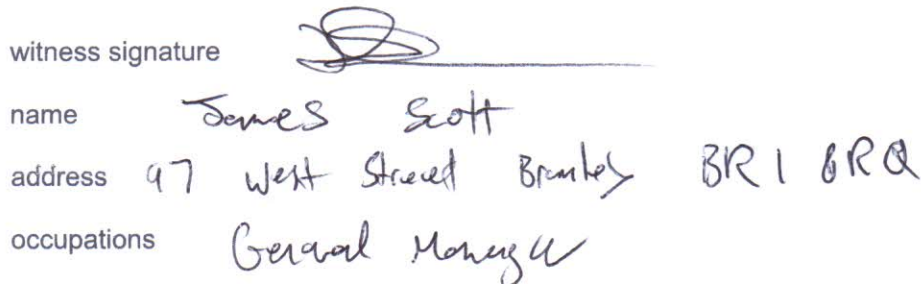 witness signature
name James Scott
address 97 West Street Bromley BR1
occupations General Manager